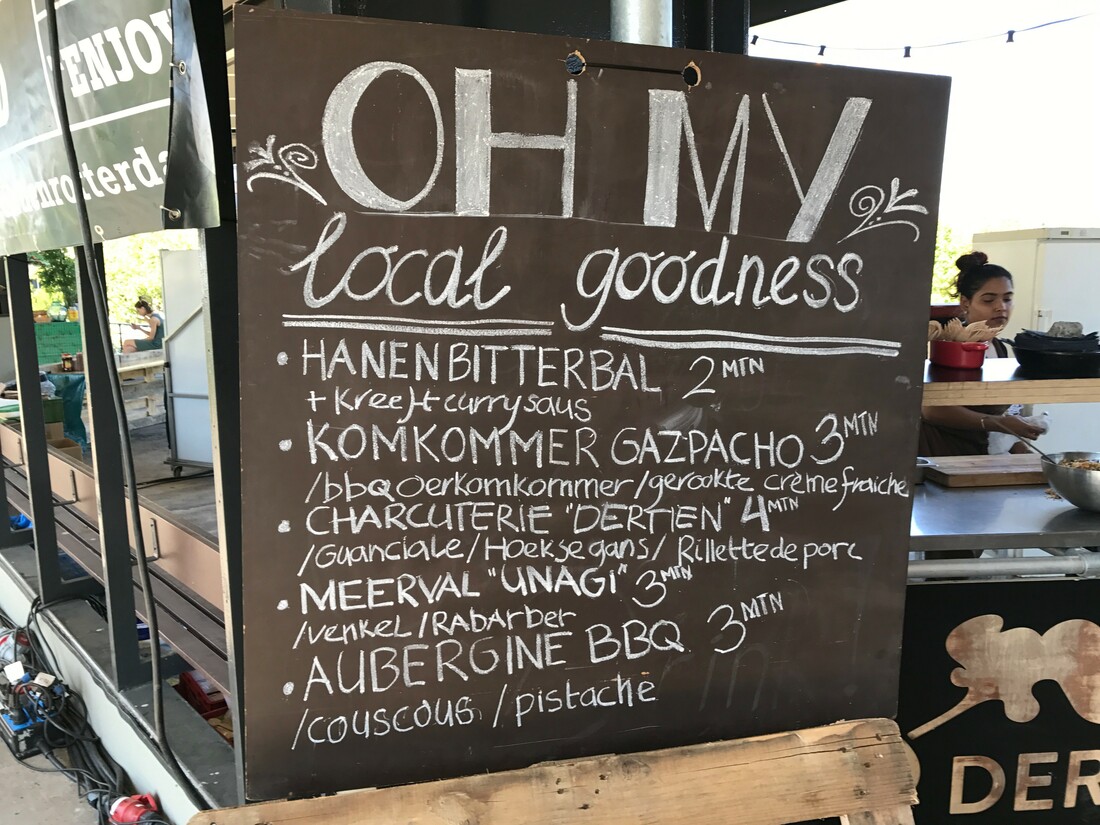 ENJOY
OH MY
local goodness
• HANENBITTERBAL 2 MTN
+ Kreeft currysaus
• KOMKOMMER GAZPACHO 3 MTN
/bbq oerkomkommer/gerookte crème fraiche
• CHARCUTERIE "DERTIEN" 4 MTN
/Guanciale/Hoekse gans/Rillette de porc
• MEERVAL "UNAGI" 3 MTN
/venkel/RabArber
• AUBERGINE BBQ 3 MTN
/couscous/pistache
DER